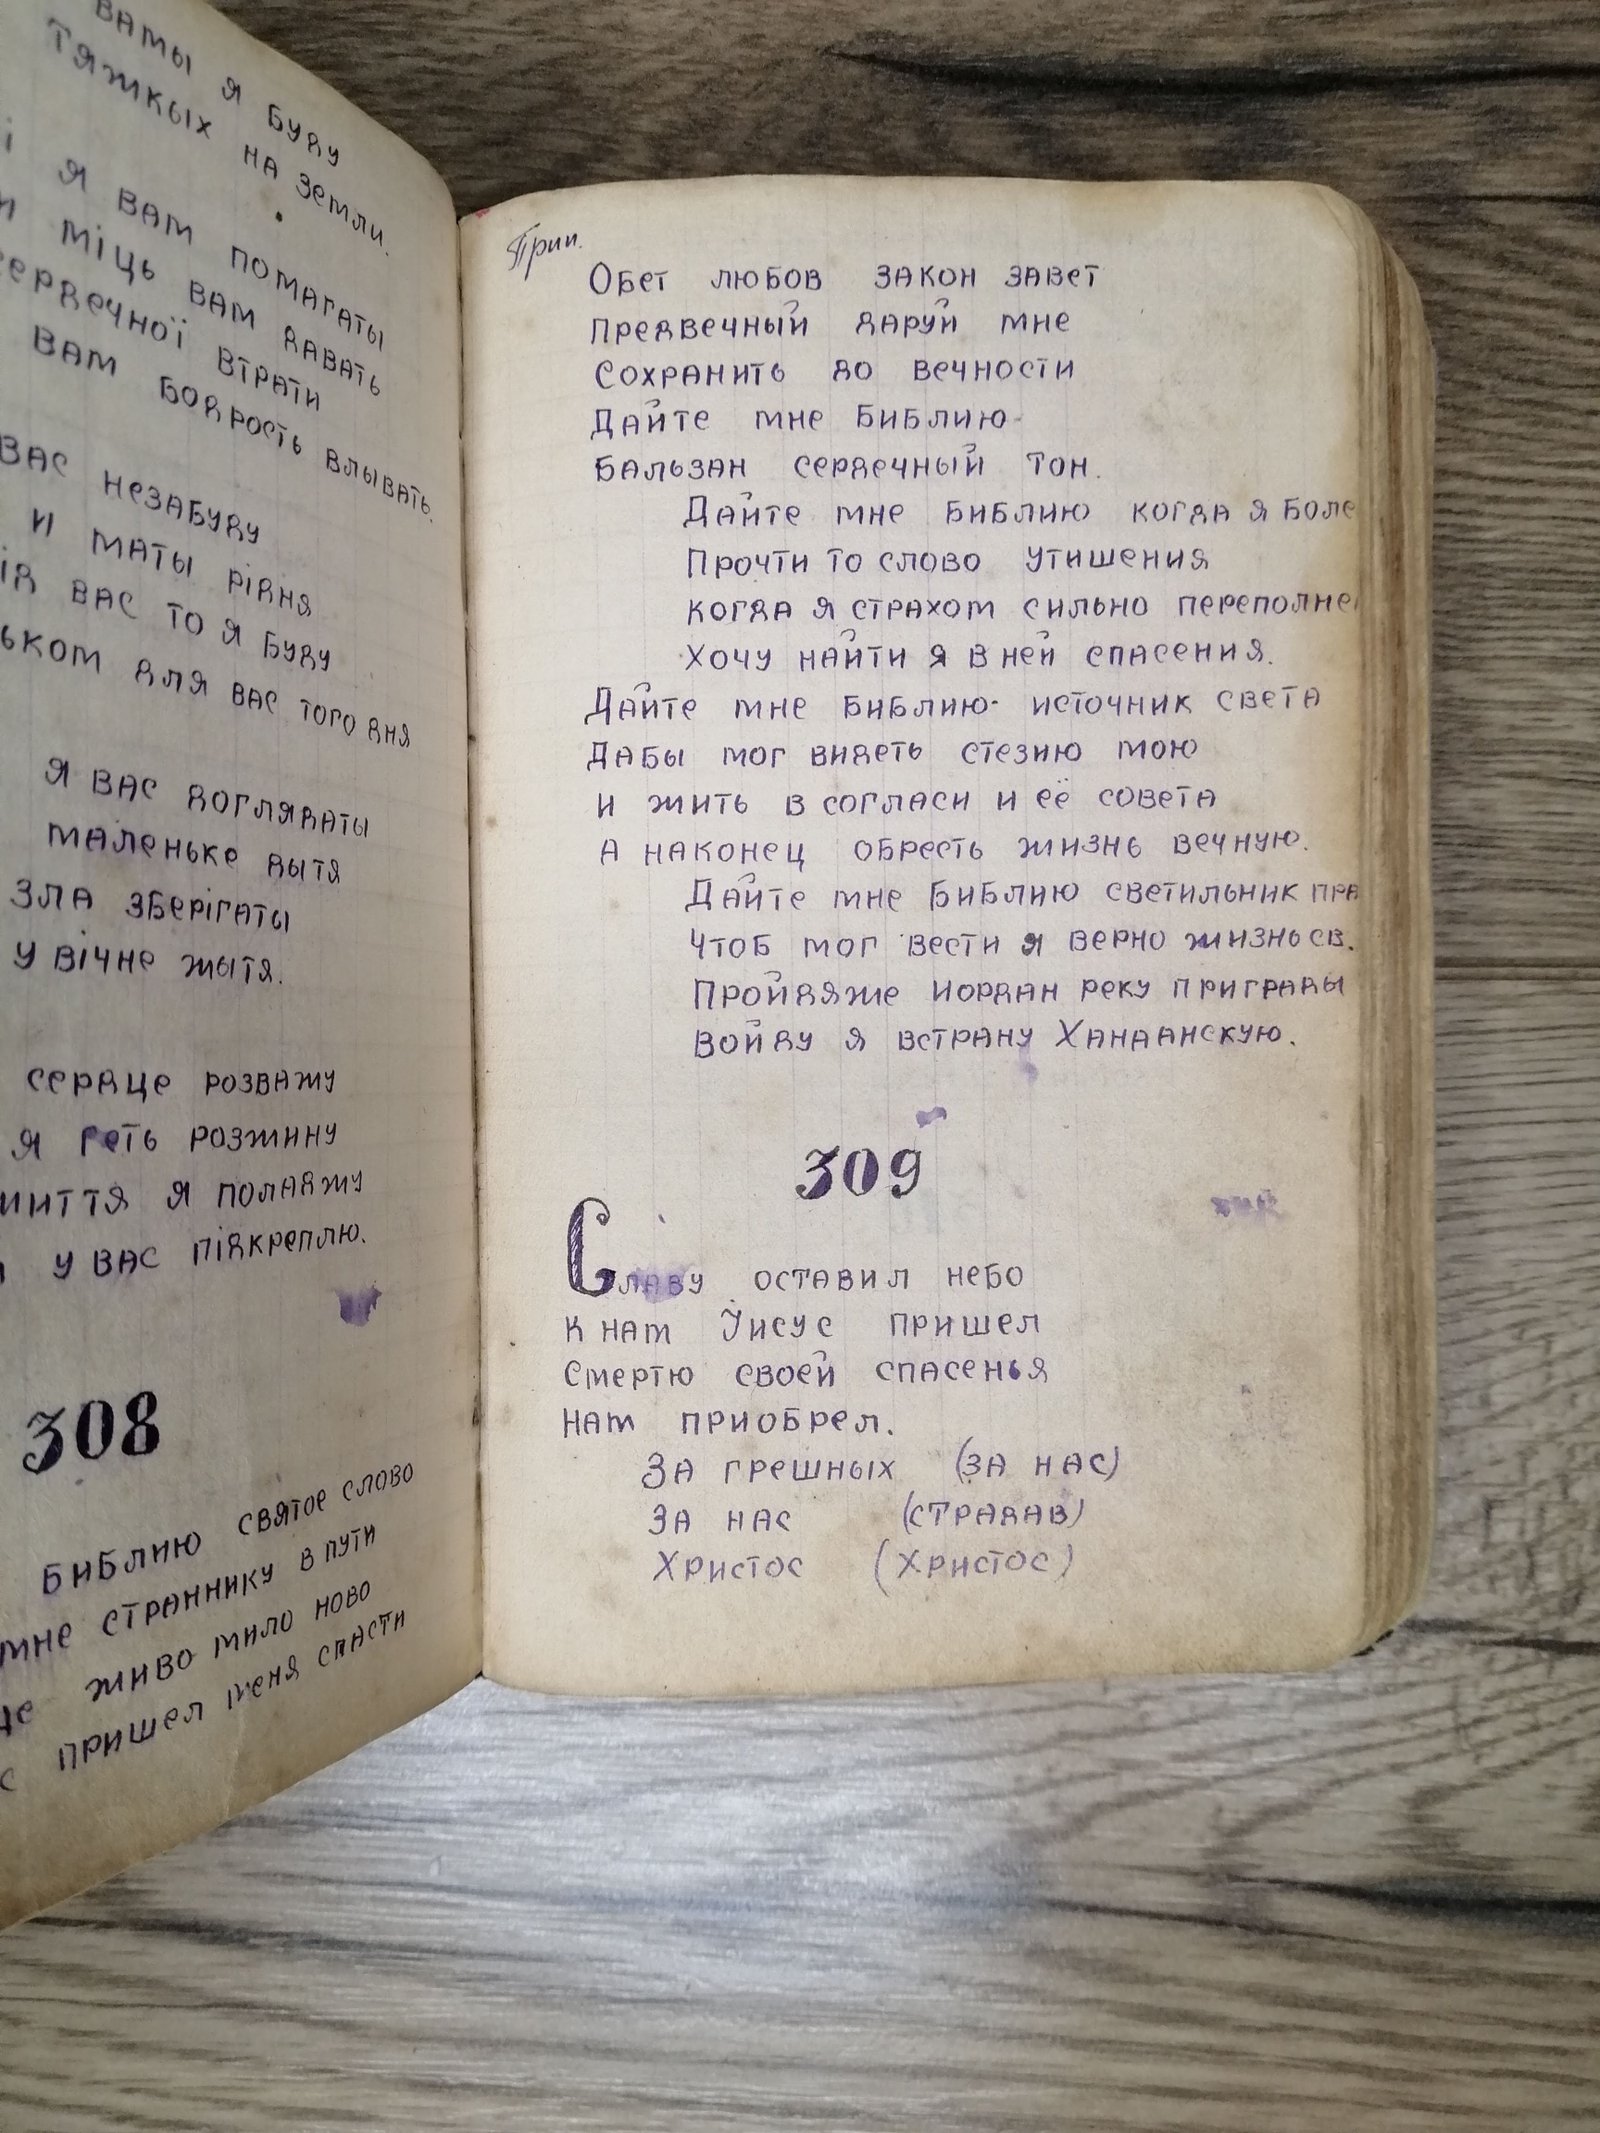 ваты я буду
тяжкых на земли.
і я вам помагаты
міць вам давать
сердечної втрати
вам бодрость влывать.
вас незабуду
и маты рідня
від вас то я буду
ьком для вас того дня
я вас доглядаты
маленьке дытя
зла зберігаты
у вічне жытя.
сердце розважу
я геть розжину
життя я поладжу
у вас підкреплю.
308
Библию святое слово
мне страннику в пути
живо мило ново
пришел меня спасти
Прип.
Обет любов закон завет
предвечный даруй мне
Сохранить до вечности
Дайте мне Библию-
Бальзан сердечный тон.
Дайте мне Библию когда я боле
Прочти то слово утишения
когда я страхом сильно переполне
Хочу найти я в ней спасения.
Дайте мне Библию- источник света
Дабы мог видеть стезию мою
и жить в согласи и её совета
А наконец обресть жизнь вечную.
Дайте мне Библию светильник пра
Чтоб мог вести я верно жизнь св.
Пройдяже Иордан реку приграды
Войду я встрану Ханаанскую.
309
Славу оставил небо
К нам Иисус пришел
Смертю своей спасенья
Нам приобрел.
За грешных (за нас)
За нас (страдав)
Христос (Христос)